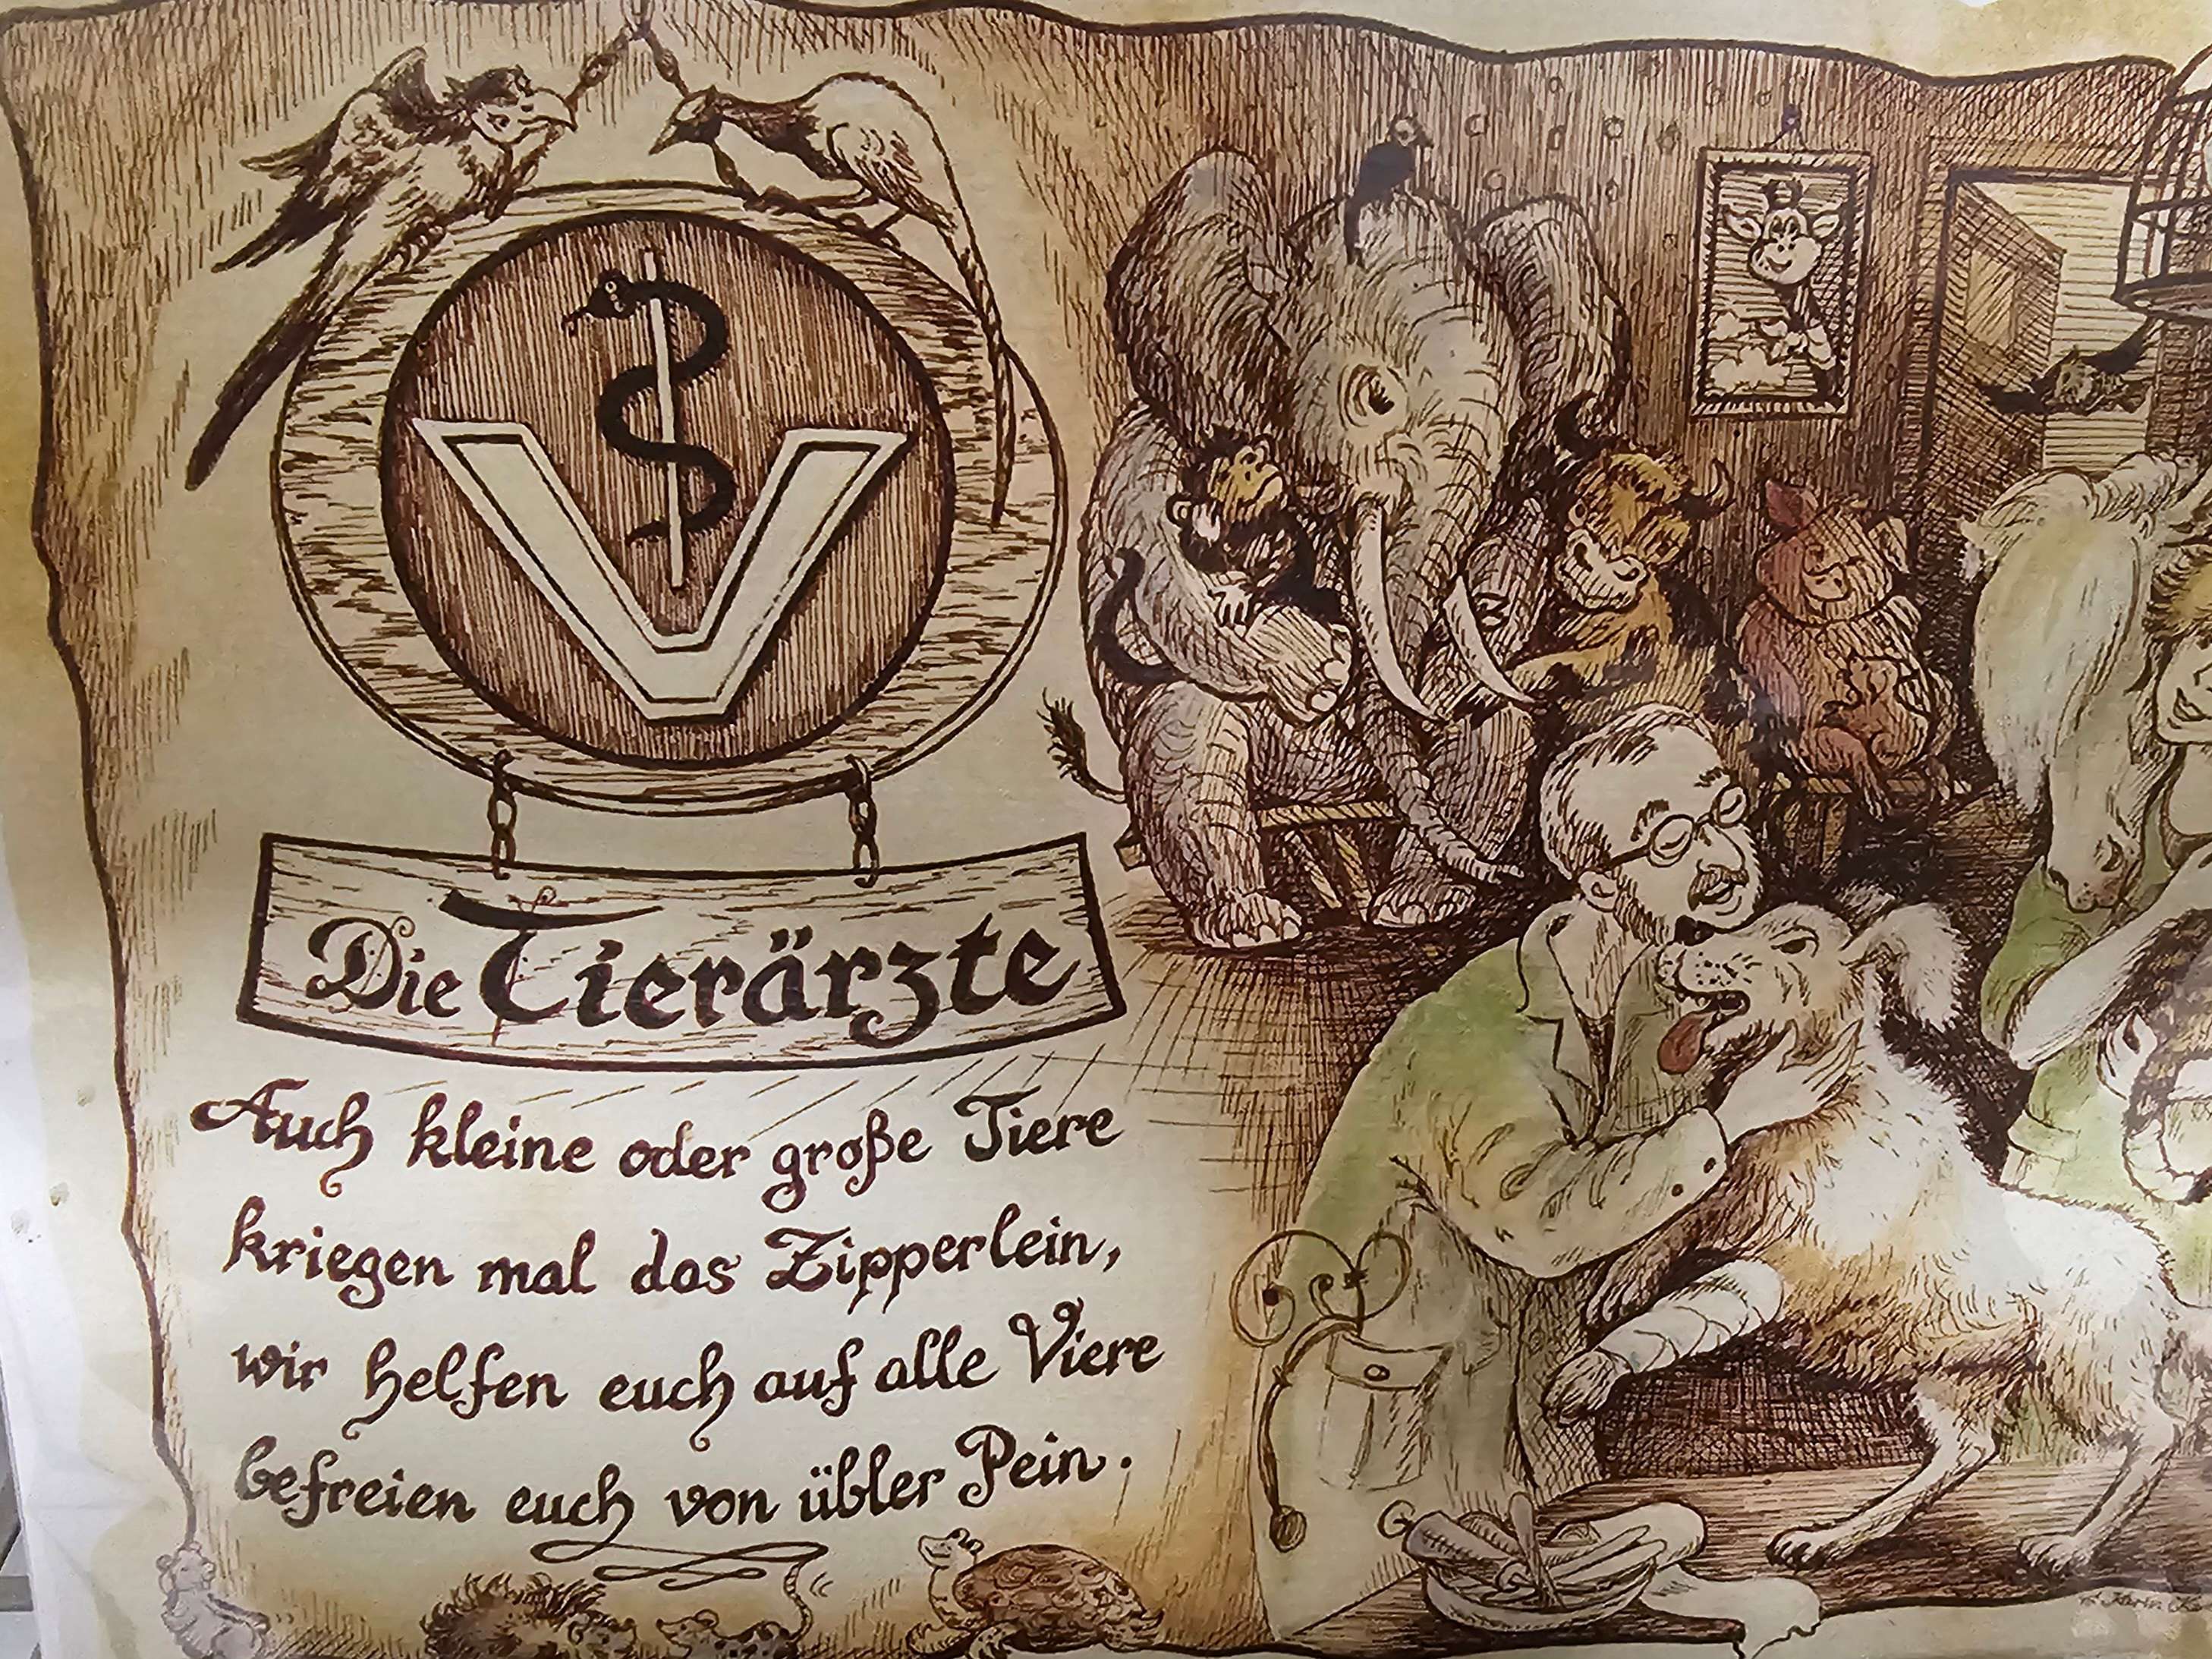 V
Die Tierärzte
Auch kleine oder große Tiere
kriegen mal das Zipperlein,
wir helfen euch auf alle Viere
befreien euch von übler Pein.